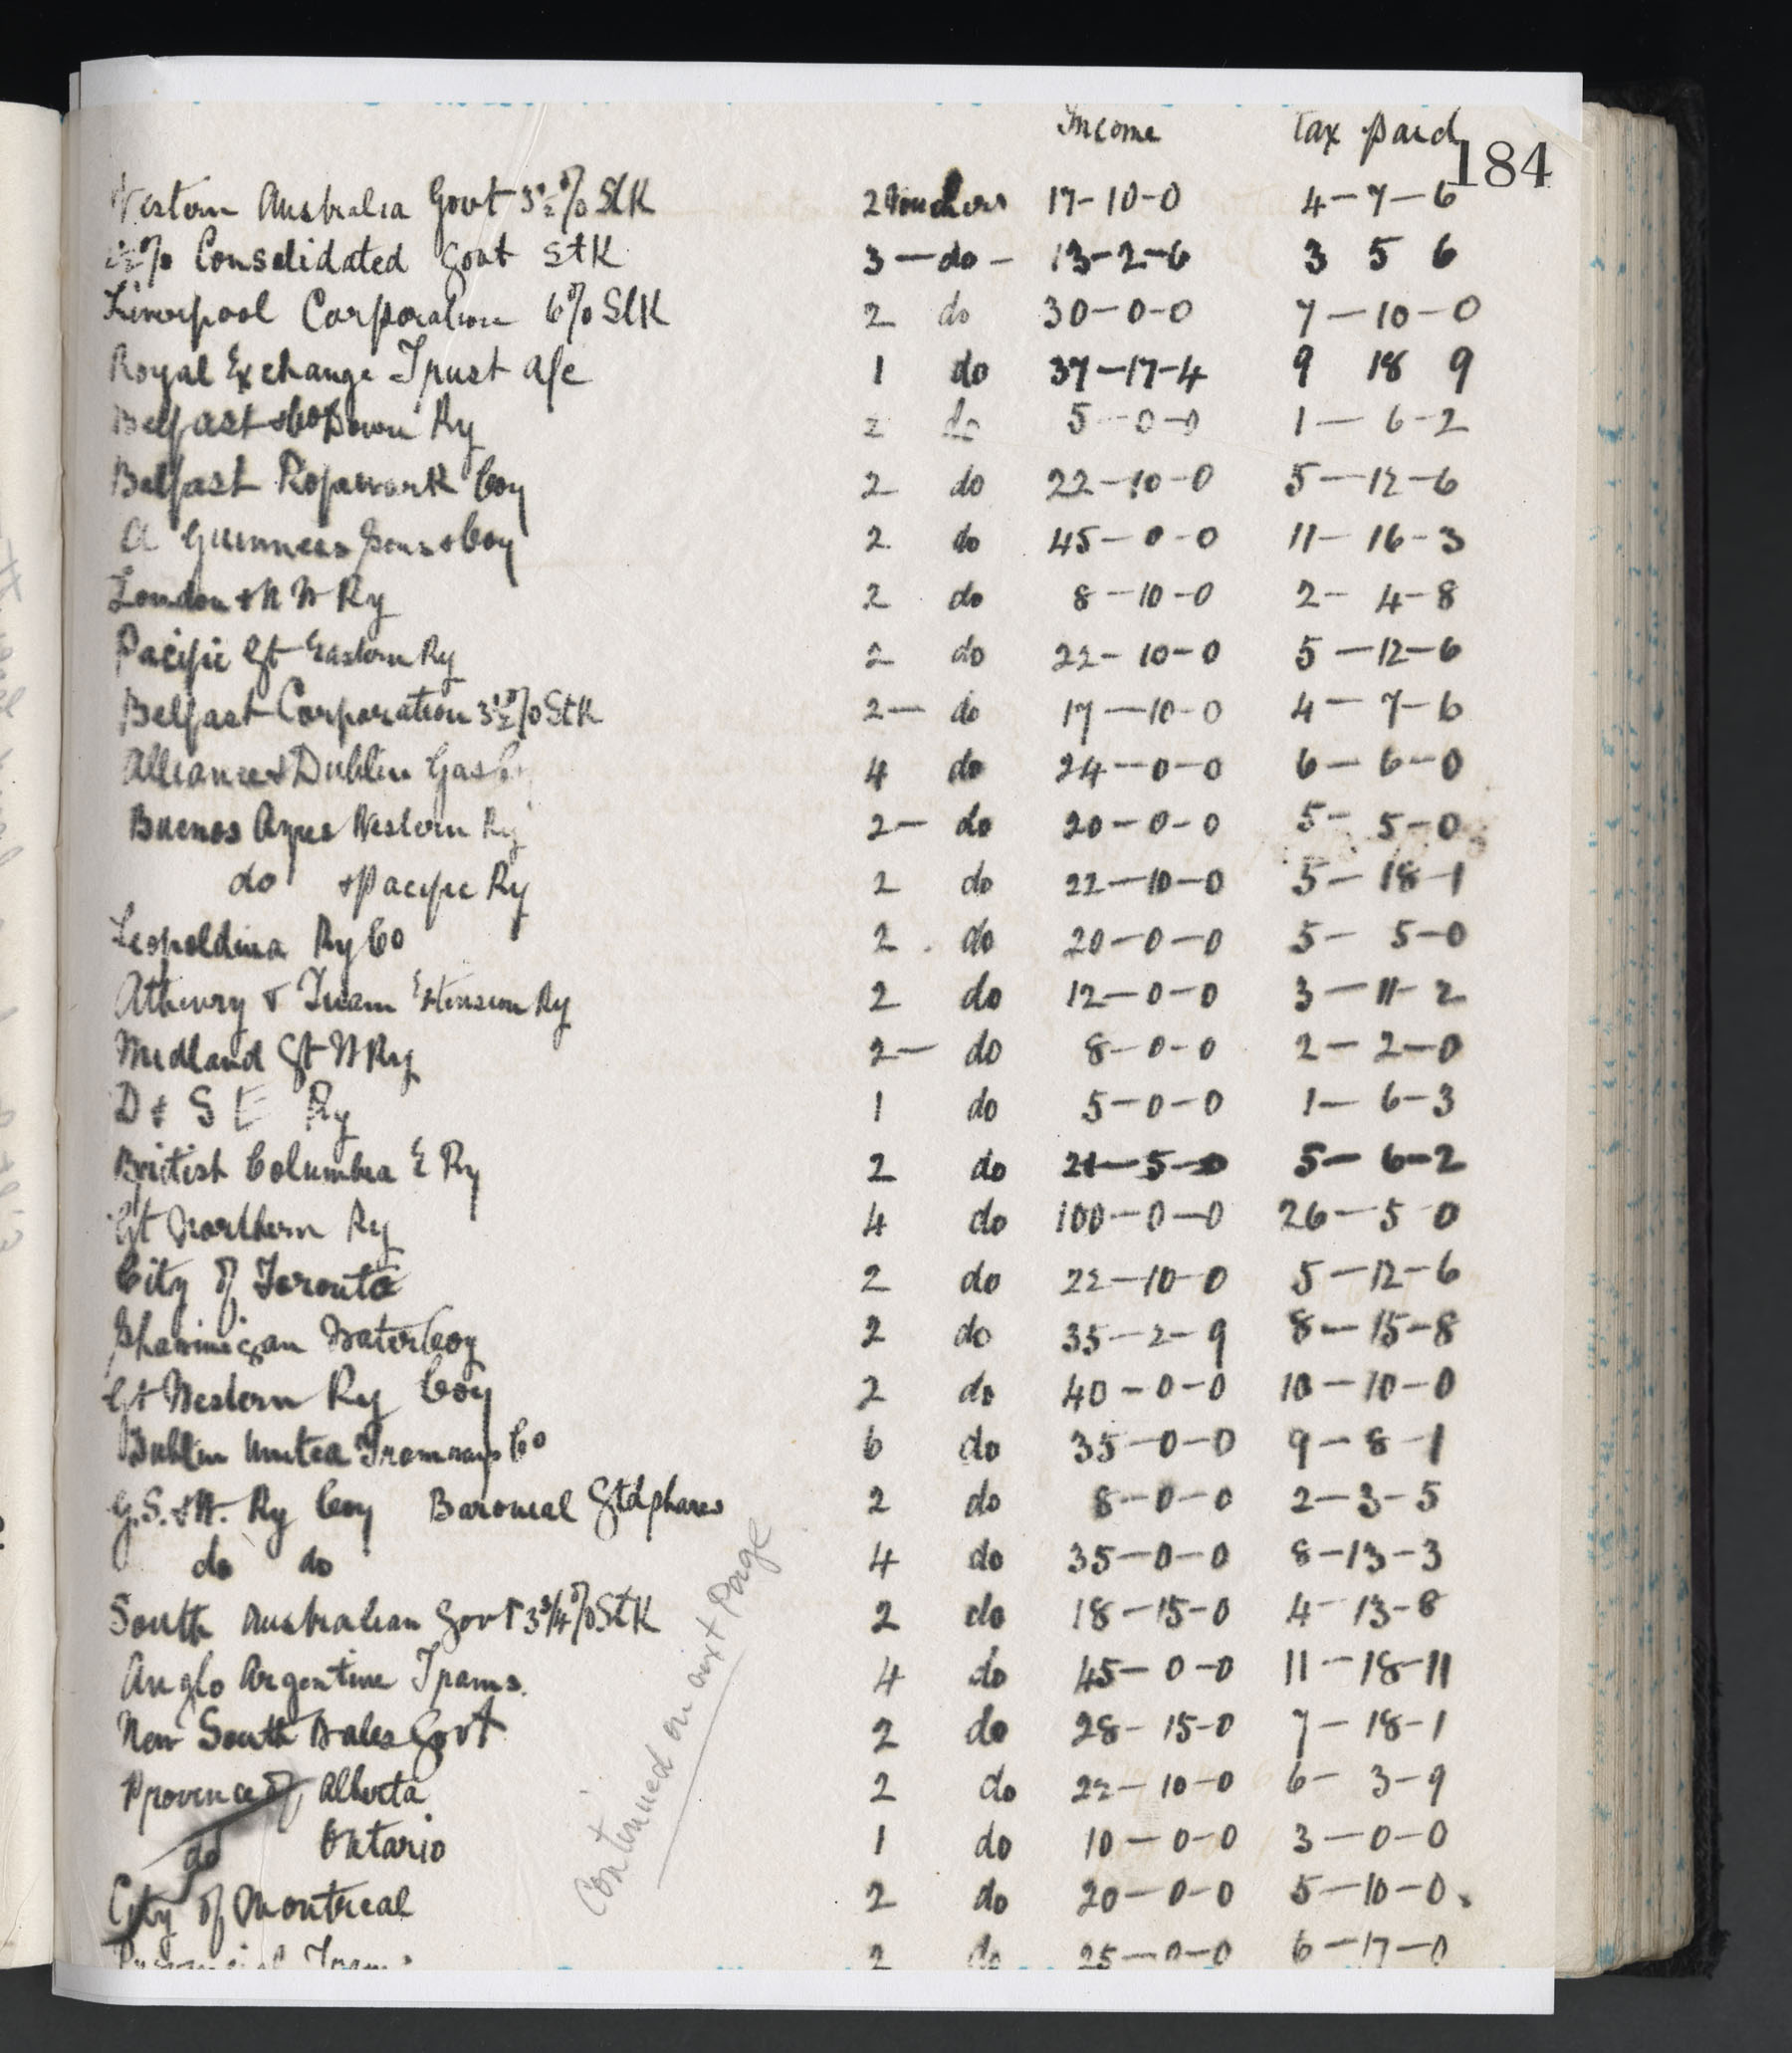 Income Tax paid
184
Western Australia Govt 3½% Stk 2 Vouchers 17-10-0 4-7-6
2½% Consolidated Govt Stk 3 - do - 13-2-6 3 5 6
Liverpool Corporation 6% Stk 2 do 30-0-0 7-10-0
Royal Exchange Trust a/c 1 do 37-17-4 9 18 9
Belfast & Co Down Ry 2 do 5-0-0 1-6-2
Belfast Ropework Coy 2 do 22-10-0 5-12-6
A Guinness Sons & Coy 2 do 45-0-0 11-16-3
London & N W Ry 2 do 8-10-0 2-4-8
Pacific Gt Eastern Ry 2 do 22-10-0 5-12-6
Belfast Corporation 3½% Stk 2 - do 17-10-0 4-7-6
Alliance & Dublin Gas 4 do 24-0-0 6-6-0
Buenos Ayres Western Ry 2 - do 20-0-0 5-5-0
do & Pacific Ry 2 do 22-10-0 5-18-1
Leopoldina Ry Co 2 do 20-0-0 5-5-0
Athenry & Tuam Extension Ry 2 do 12-0-0 3-11-2
Midland Gt W Ry 2 - do 8-0-0 2-2-0
D & S E Ry 1 do 5-0-0 1-6-3
British Columbia E Ry 2 do 21-5-0 5-6-2
Gt Northern Ry 4 do 100-0-0 26-5 0
City of Toronto 2 do 22-10-0 5-12-6
Shawinigan Water Coy 2 do 35-2-9 8-15-8
Gt Western Ry Coy 2 do 40-0-0 10-10-0
Dublin United Tramways Co 6 do 35-0-0 9-8-1
G.S. & W. Ry Coy Baronial Gtd shares 2 do 8-0-0 2-3-5
do do 4 do 35-0-0 8-13-3
South Australian Govt 3¾% Stk 2 do 18-15-0 4-13-8
Anglo Argentine Trams. 4 do 45-0-0 11-18-11
New South Wales Govt 2 do 28-15-0 7-18-1
Province of Alberta 2 do 22-10-0 6-3-9
do Ontario 1 do 10-0-0 3-0-0
City of Montreal 2 do 20-0-0 5-10-0.
Provincial Trams 2 do 25-0-0 6-17-0
Continued on next Page